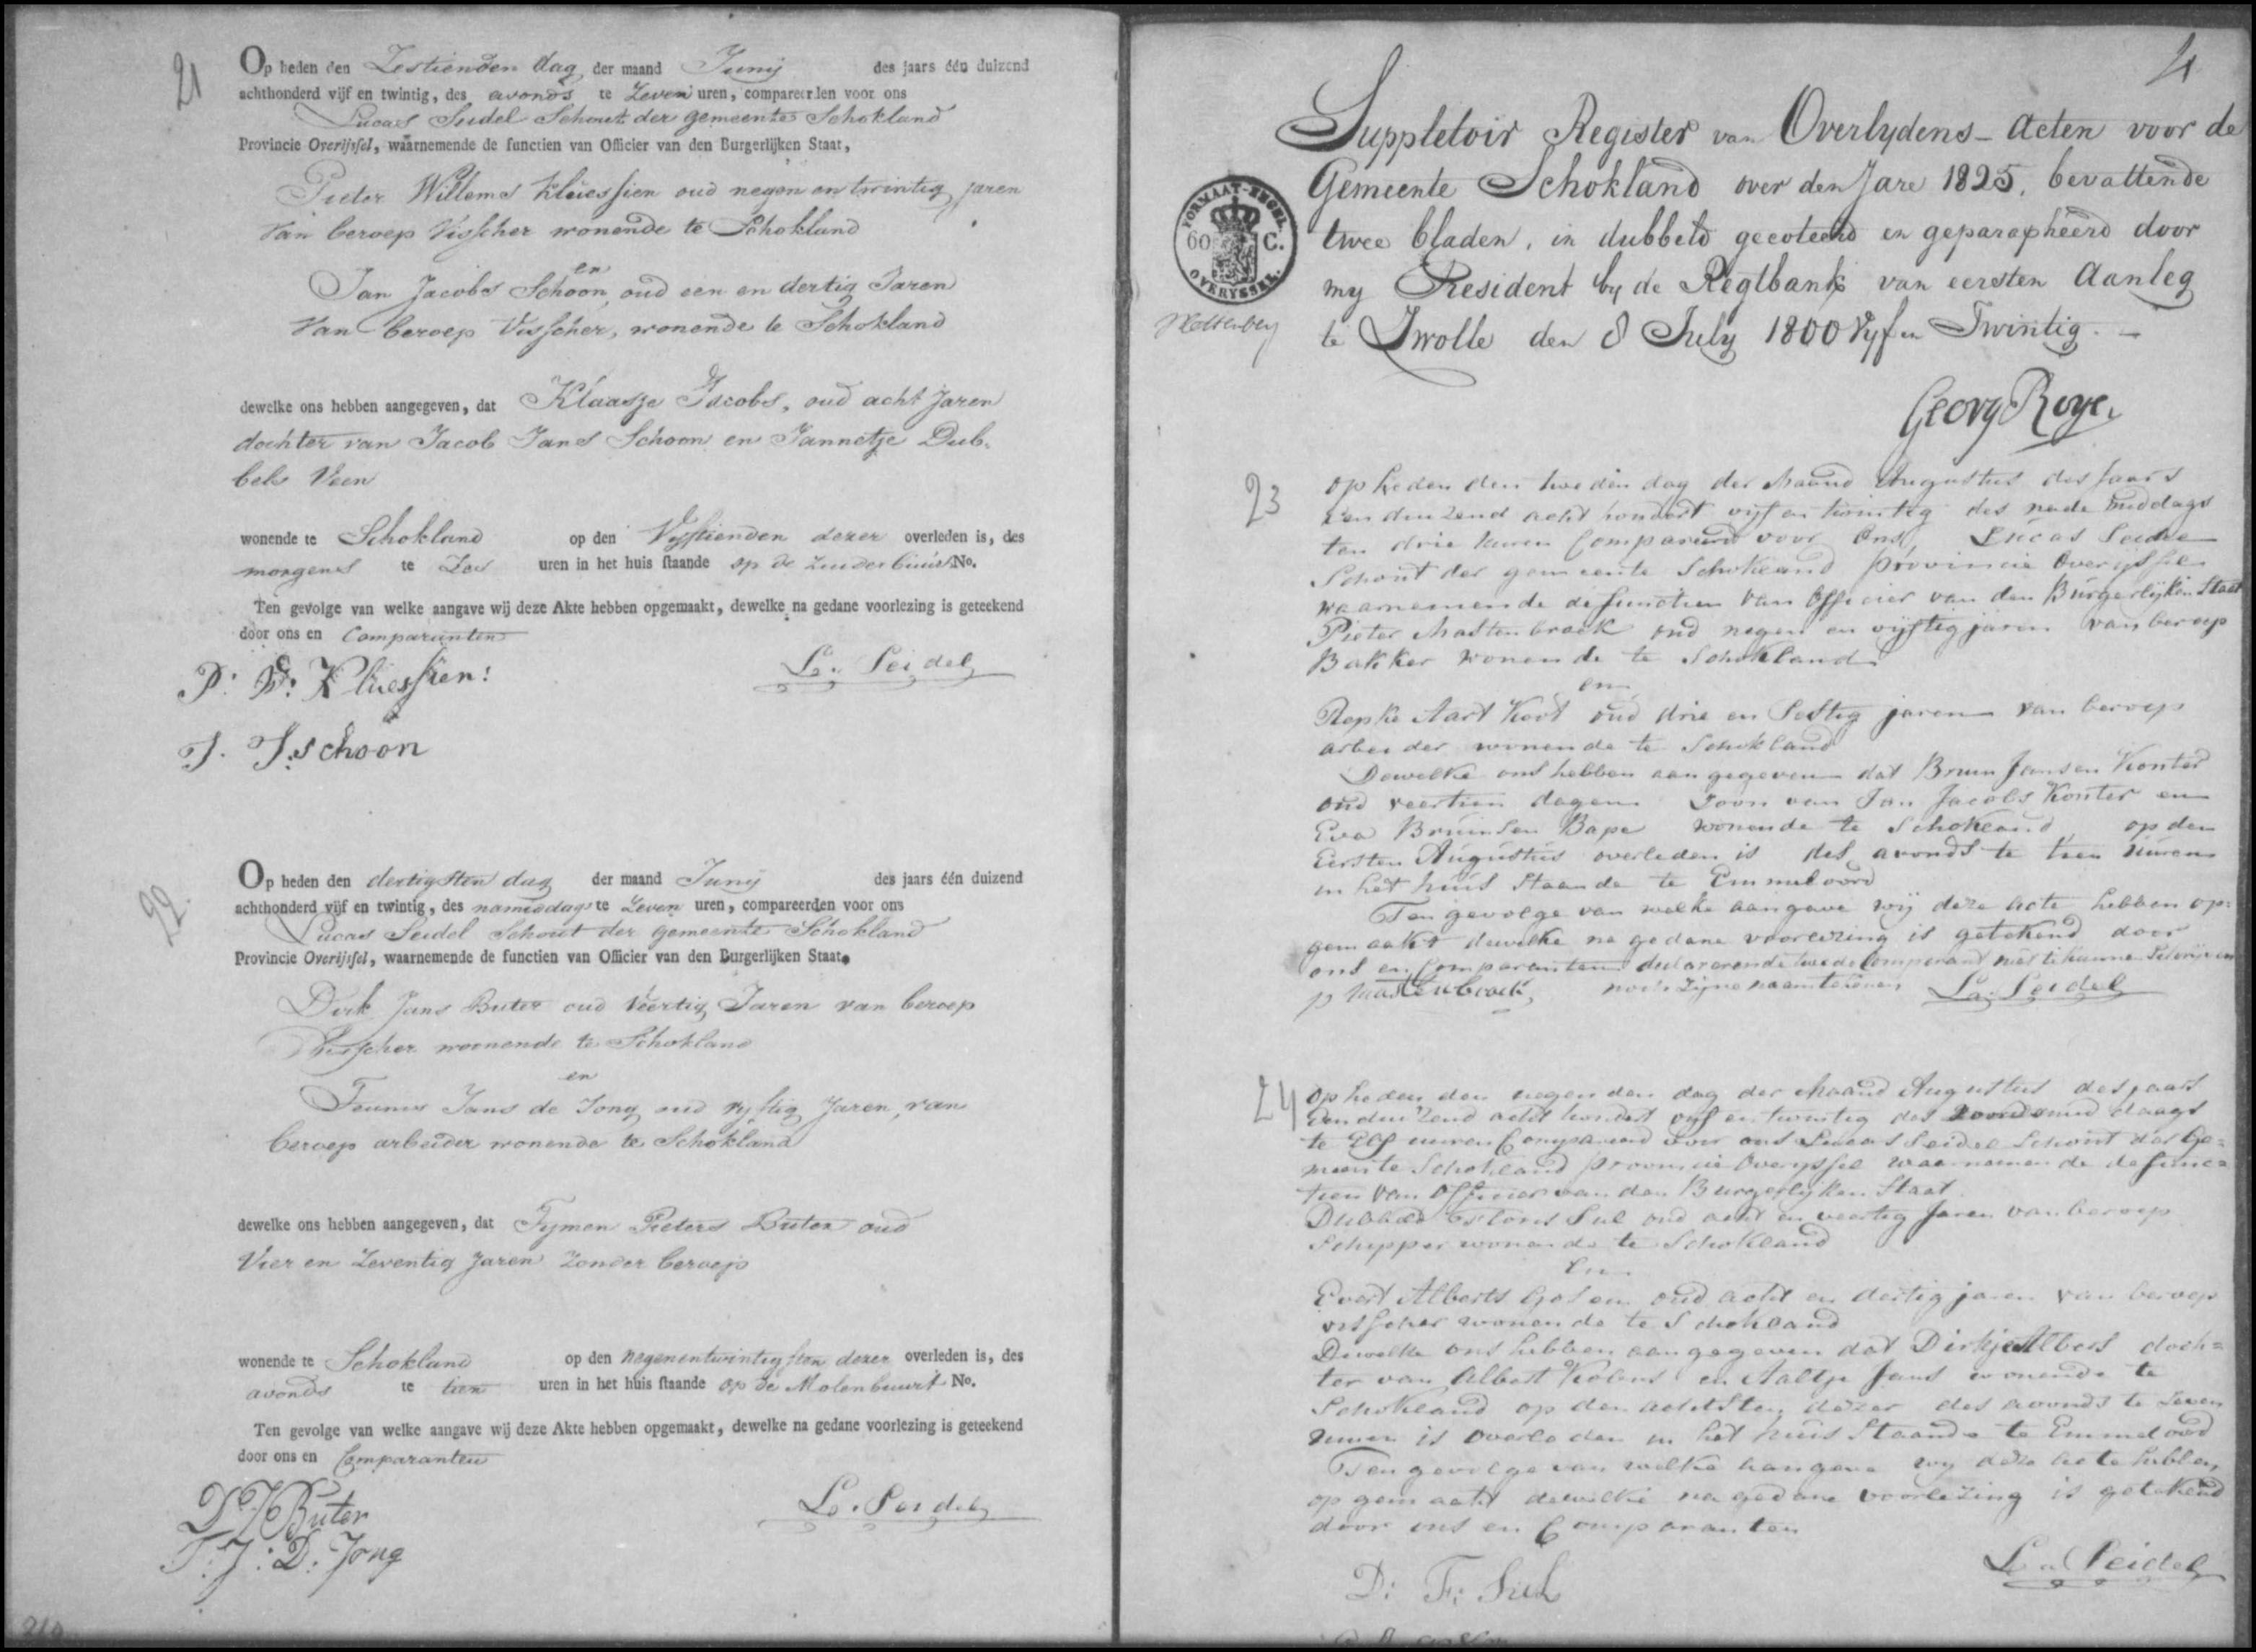 21
Op heden den Zestienden dag der maand Junij des jaars één duizend
achthonderd vijf en twintig, des avonds te Zeven uren, compareerden voor ons
Lucas Seidel Schout der gemeente Schokland
Provincie Overijssel, waarnemende de functien van Officier van den Burgerlijken Staat,
Pieter Willems Kluessien oud negen en twintig jaren
van beroep Visscher wonende te Schokland
en
Jan Jacobs Schoon oud een en dertig Jaren
Van beroep Visscher, wonende te Schokland
dewelke ons hebben aangegeven, dat Klaasje Jacobs, oud acht Jaren
dochter van Jacob Jans Schoon en Jannetje Dub-
bels Veen
wonende te Schokland op den Vyftienden dezer overleden is, des
morgens te Zes uren in het huis staande op de Zuiderbuurt No.
Ten gevolge van welke aangave wij deze Akte hebben opgemaakt, dewelke na gedane voorlezing is geteekend
door ons en Comparanten
P: W: Kluessien: L. Seidel
J. J. schoon
22
Op heden den dertigsten dag der maand Junij des jaars één duizend
achthonderd vijf en twintig, des namiddags te Zeven uren, compareerden voor ons
Lucas Seidel Schout der gemeente Schokland
Provincie Overijssel, waarnemende de functien van Officier van den Burgerlijken Staat,
Dirk Jans Buter oud Veertig Jaren van beroep
Visscher woonende te Schokland
en
Teunis Jans de Jong oud vyftig Jaren, van
beroep arbeider wonende te Schokland
dewelke ons hebben aangegeven, dat Tymen Pieters Buter oud
Vier en Zeventig Jaren Zonder beroep
wonende te Schokland op den Negenentwintigsten dezer overleden is, des
avonds te tien uren in het huis staande op de Molenbuurt No.
Ten gevolge van welke aangave wij deze Akte hebben opgemaakt, dewelke na gedane voorlezing is geteekend
door ons en Comparanten
D. J. Buter L. Seidel
T: J: D: Jong
4
Suppletoir Register van Overlydens-Acten voor de
Gemeente Schokland over den Jare 1825, bevattende
twee bladen, in dubbeld gecoteerd en geparapheerd door
my President by de Regtbank van eersten Aanleg
te Zwolle den 8 July 1800 Vyf en Twintig. -
FORMAAT-ZEGEL.
60 C.
OVERYSSEL.
Georg Royer
23
op heden den tweeden dag der Maand Augustus des Jaars
een duizend acht hondert vijf en twintig des nade middags
ten drie uuren Compareerd voor Ons Lucas Seidel
Schout der gemeente Schokland provincie Overijssel
waarnemende de functien van Officier van den Burgerlijken Staat
Pieter Mastenbroek oud negen en vijftig jaren van beroep
Bakker wonende te Schokland
en
Repke Aart Koot oud drie en Sestig jaren van beroep
arbeider wonende te Schokland
Dewelke ons hebben aangegeven dat Bruin Jansen Konter
oud veertien dagen Zoon van Jan Jacobs Konter en
Eva Bruinsen Bape wonende te Schokland op den
Eersten Augustus overleden is des avonds te tien uuren
in het huis Staande te Emmeloord
Ten gevolge van welke aangave wij deze acte hebben op:
gemaakt dewelke na gedane voorlezing is getekend door
ons en Comparanten declarerende tweede Comparand niet te kunnen Schrijven
noch zijne naam tekenen
p Mastenbroek, L. Seidel
24
op heden den negenden dag der Maand Augustus des jaars
Een duizend acht hondert vijf en twintig des voordemid daags
te Elf uuren Compareerd voor ons Lucas Seidel Schout der Ge=
meente Schokland provincie Overijssel waarnemende de func=
tien van Officier van den Burgerlijken Staat
Dubbeld Sul oud acht en veertig Jaren van beroep
Schipper wonende te Schokland
En
Evert Alberts oud acht en dertig jaren van beroep
visscher wonende te Schokland
Dewelke ons hebben aangegeven dat Dirkje Albers doch=
ter van Albert en Aaltje Jans wonende te
Schokland op den achtsten dezer des avonds te Zeven
uuren is overleden in het huis Staande te Emmeloord
Ten gevolge van welke aangave wy deze acte hebben
op gemaakt dewelke na gedane voorlezing is getekend
door ons en Comparanten
L. Seidel
D: F: Sul